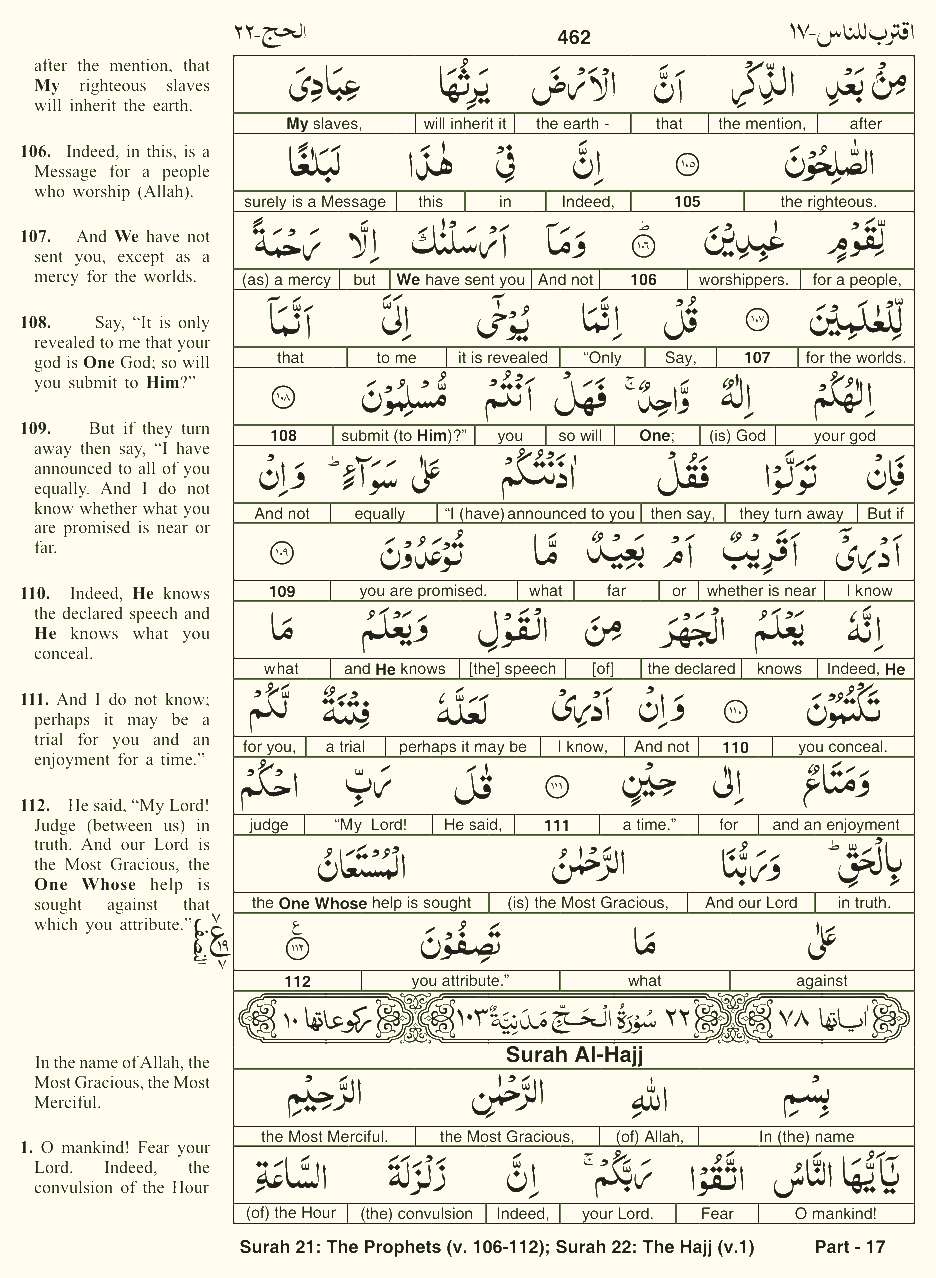 اقترب للناس-١٧
462
الحج-٢٢
after the mention, that
My righteous slaves
will inherit the earth.
106. Indeed, in this, is a
Message for a people
who worship (Allah).
107. And We have not
sent you, except as a
mercy for the worlds.
108. Say, “It is only
revealed to me that your
god is One God; so will
you submit to Him?”
109. But if they turn
away then say, “I have
announced to all of you
equally. And I do not
know whether what you
are promised is near or
far.
110. Indeed, He knows
the declared speech and
He knows what you
conceal.
111. And I do not know;
perhaps it may be a
trial for you and an
enjoyment for a time.”
112. He said, “My Lord!
Judge (between us) in
truth. And our Lord is
the Most Gracious, the
One Whose help is
sought against that
which you attribute.”
In the name of Allah, the
Most Gracious, the Most
Merciful.
1. O mankind! Fear your
Lord. Indeed, the
convulsion of the Hour
مِنْۢ بَعْدِ الذِّكْرِ اَنَّ الْاَرْضَ يَرِثُهَا عِبَادِىَ
My slaves, will inherit it the earth - that the mention, after
الصّٰلِحُوْنَ ١٠٥ اِنَّ فِىْ هٰذَا لَبَلٰغًا
surely is a Message this in Indeed, 105 the righteous.
لِّقَوْمٍ عٰبِدِيْنَ ١٠٦ؕ وَمَاۤ اَرْسَلْنٰكَ اِلَّا رَحْمَةً
(as) a mercy but We have sent you And not 106 worshippers. for a people,
لِّلْعٰلَمِيْنَ ١٠٧ قُلْ اِنَّمَا يُوْحٰۤى اِلَىَّ اَنَّمَاۤ
that to me it is revealed “Only Say, 107 for the worlds.
اِلٰهُكُمْ اِلٰهٌ وَّاحِدٌ ۚ فَهَلْ اَنْتُمْ مُّسْلِمُوْنَ ١٠٨
108 submit (to Him)?” you so will One; (is) God your god
فَاِنْ تَوَلَّوْا فَقُلْ اٰذَنْتُكُمْ عَلٰى سَوَآءٍ ؕ وَاِنْ
And not equally “I (have) announced to you then say, they turn away But if
اَدْرِىْۤ اَقَرِيْبٌ اَمْ بَعِيْدٌ مَّا تُوْعَدُوْنَ ١٠٩
109 you are promised. what far or whether is near I know
اِنَّهٗ يَعْلَمُ الْجَهْرَ مِنَ الْقَوْلِ وَيَعْلَمُ مَا
what and He knows [the] speech [of] the declared knows Indeed, He
تَكْتُمُوْنَ ١١٠ وَاِنْ اَدْرِىْ لَعَلَّهٗ فِتْنَةٌ لَّكُمْ
for you, a trial perhaps it may be I know, And not 110 you conceal.
وَمَتَاعٌ اِلٰى حِيْنٍ ١١١ قٰلَ رَبِّ احْكُمْ
judge “My Lord! He said, 111 a time.” for and an enjoyment
بِالْحَقِّ ؕ وَرَبُّنَا الرَّحْمٰنُ الْمُسْتَعَانُ
the One Whose help is sought (is) the Most Gracious, And our Lord in truth.
عَلٰى مَا تَصِفُوْنَ ١١٢ ع
٧ ع ١٩ ٧
112 you attribute.” what against
اٰيَاتها ٧٨ ٢٢ سُوْرَةُ الْحَجِّ مَدَنِيَّةٌ ١٠٣ ركوعاتها ١٠
Surah Al-Hajj
بِسْمِ اللهِ الرَّحْمٰنِ الرَّحِيْمِ
the Most Merciful. the Most Gracious, (of) Allah, In (the) name
يٰۤاَيُّهَا النَّاسُ اتَّقُوْا رَبَّكُمْ ۚ اِنَّ زَلْزَلَةَ السَّاعَةِ
(of) the Hour (the) convulsion Indeed, your Lord. Fear O mankind!
Surah 21: The Prophets (v. 106-112); Surah 22: The Hajj (v.1) Part - 17